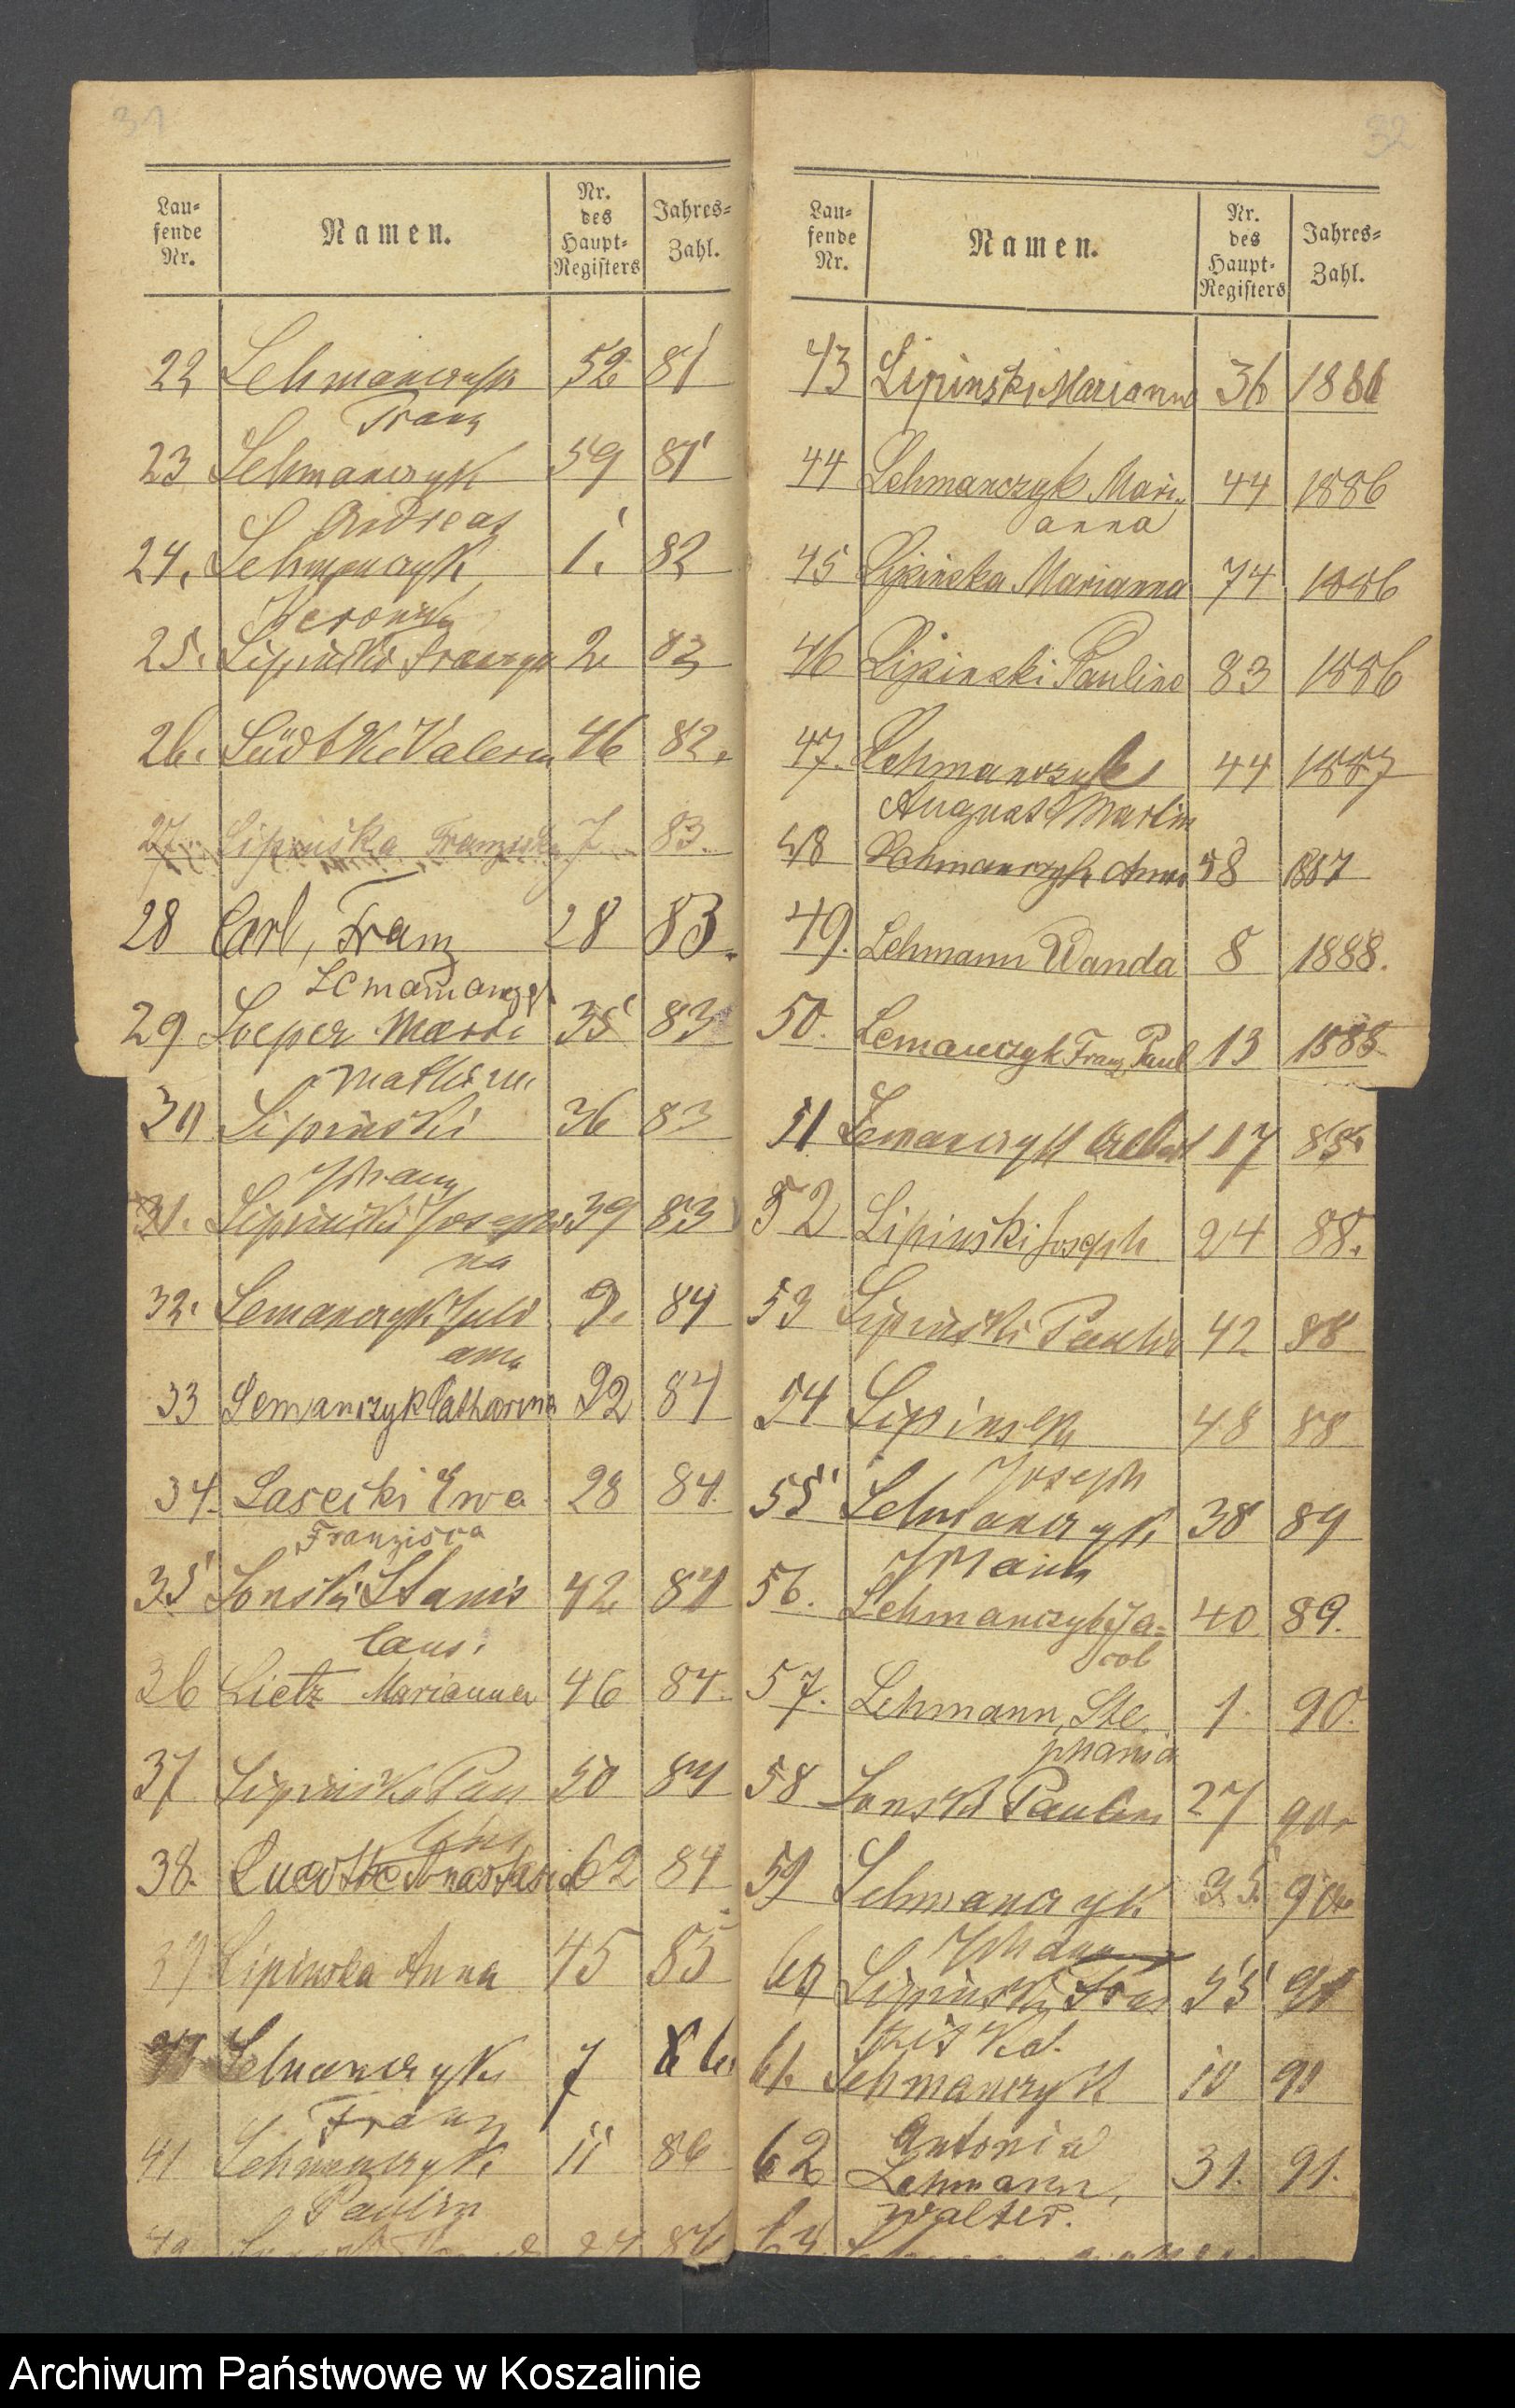 31
Lau-
fende
Nr.
Namen.
Nr.
des
Haupt-
Registers
Jahres-
Zahl.
22 Lehmanczyk 52 81
Franz
23 Lehmanczyk 59 81
Andreas
24. Lehmanczyk 1. 82
Veronika
25. Lipinski 2. 83
26. Lüdtke Valeria 46 82.
27. Lipinska Franziska 7 83.
28 Carl, Franz 28 83.
29 Loeper 35 83
30 Lipinski 36 83
Johann
31. Lipinski Josephi 39 83
na
32. Lemanczyk Juli 9. 84
ana
33 Lemanczyk Catharina 22 84
34. Lasecki Ewa 28 84.
Franzisca
35 Lonski Stanis 42 84
laus.
36 Lietz Marianna 46 84.
37 Lipinski Pau 50 84
line
38. Luedtke Anastasia 62 84
39 Lipinska Anna 45 85
40 Lehmanczyk 7 86
Franz
41 Lehmanczyk 11 86
Paulin
32
Lau-
fende
Nr.
Namen.
Nr.
des
Haupt-
Registers
Jahres-
Zahl.
43 Lipinski Marianna 36 1886
44 Lehmanczyk Mari- 44 1886
anna
45 Lipinska Marianna 74 1886
46 Lipinski Pauline 83 1886
47. Lehmanczyk 44 1887
August Martin
48 Lehmanczyk Anna 58 1887
49. Lehmann Wanda 8 1888.
50. Lemanczyk Franz Paul 13 1888
51 Lemanczyk Albert 17 88.
52 Lipinski Joseph 24 88.
53 Lipinski Paulin 42 88
54 Lipinsky 48 88
Joseph
55 Lehmanczyk 38 89
Johann
56. Lehmanczyk Ja- 40 89.
cob
57. Lehmann, Ste 1. 90.
phania
58 Lonski Paulin 27 90.
59 Lehmanczyk 35 90
Johann
60 Lipinski Fran 55 91
ziska.
61. Lehmanczyk 10 91
Antonia
62 Lehmann, 31. 91.
Walter.
63
Archiwum Państwowe w Koszalinie